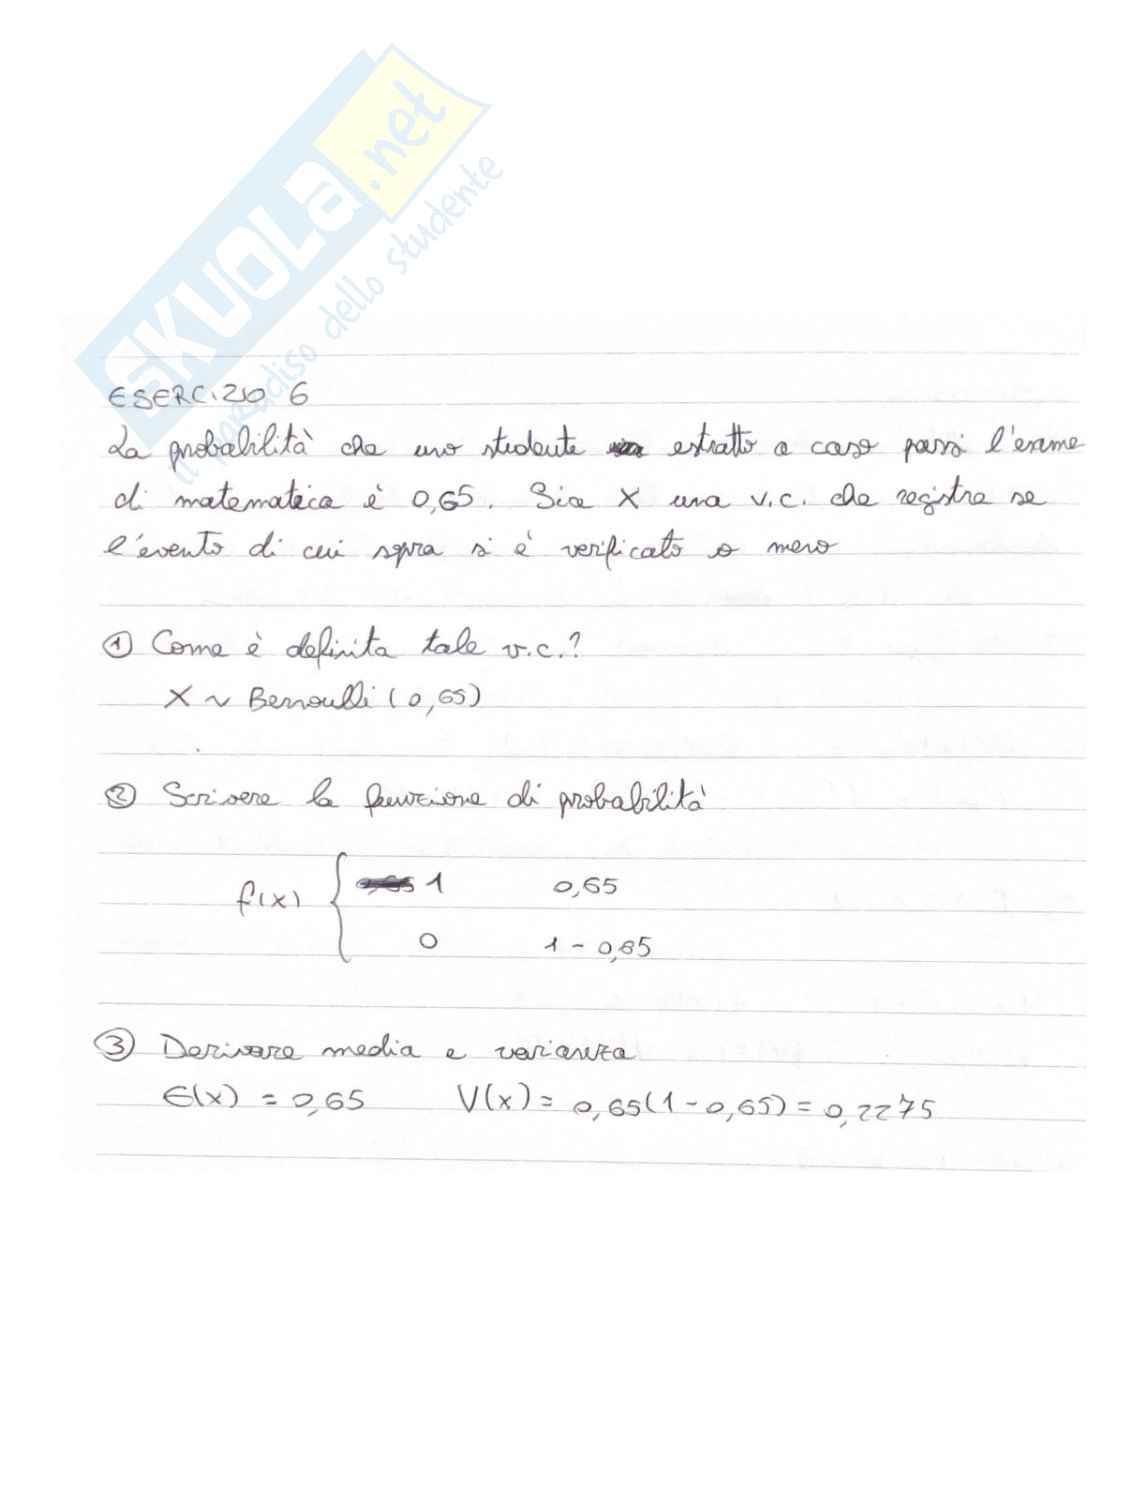 SKUOLA.net
il paradiso dello studente
ESERCIZIO 6
La probabilità che uno studente estratto a caso passi l'esame
di matematica è 0,65. Sia X una v.c. che registra se
l'evento di cui sopra si è verificato o meno
① Come è definita tale v.c.?
X ~ Bernoulli (0,65)
② Scrivere la funzione di probabilità
f(x) { 1 0,65
0 1 - 0,65
③ Derivare media e varianza
E(x) = 0,65 V(x) = 0,65(1-0,65) = 0,2275